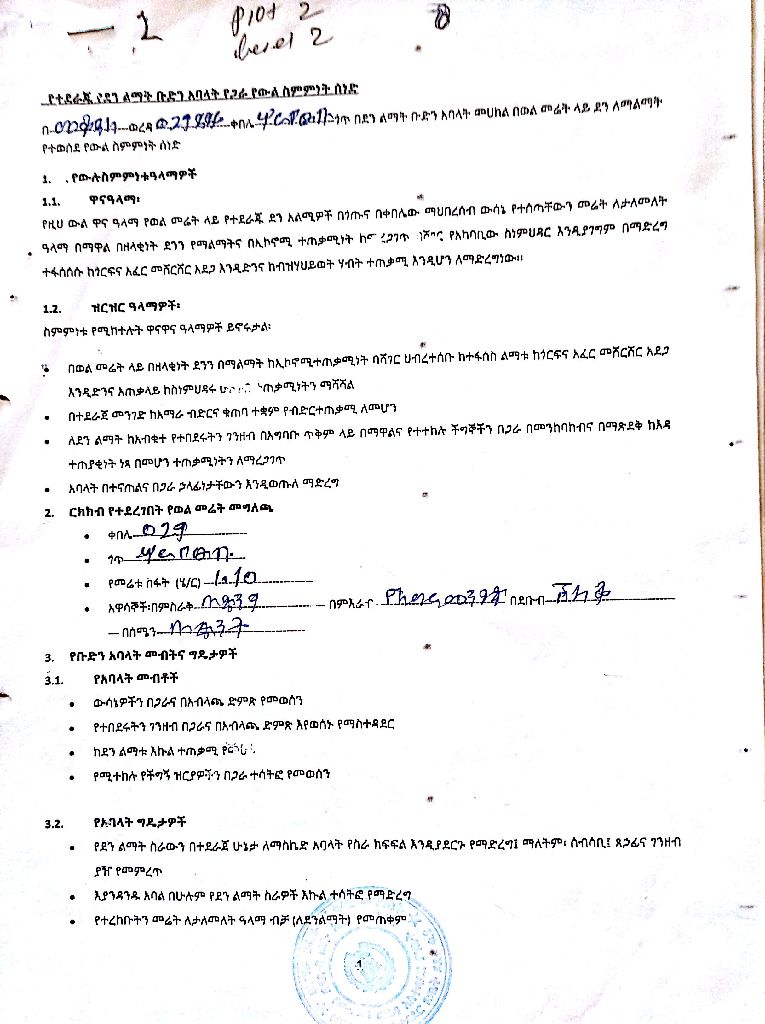 — 2 plot 2
level 2
የተደራጁ የደን ልማት ቡድን አባላት የጋራ የውል ስምምነት ሰነድ
በ ወረዳ ቀበሌ ጎጥ በደን ልማት ቡድን አባላት መሀከል በወል መሬት ላይ ደን ለማልማት
የተወሰደ የውል ስምምነት ሰነድ
1. የውሉስምምነቱዓላማዎች
1.1. ዋናዓላማ፡
የዚህ ውል ዋና ዓላማ የወል መሬት ላይ የተደራጁ ደን አልሚዎች በጎጡና በቀበሌው ማህበረሰብ ውሳኔ የተሰጣቸውን መሬት ለታለመለት
ዓላማ በማዋል በዘላቂነት ደንን የማልማትና በኢኮኖሚ ተጠቃሚነት የአካባቢው ስነምህዳር እንዲያገግም በማድረግ
ተፋሰሱ ከጎርፍና አፈር መሸርሸር አደጋ እንዲድንና ከብዝሃህይወት ሃብት ተጠቃሚ እንዲሆን ለማድረግነው።
1.2. ዝርዝር ዓላማዎች፡
ስምምነቱ የሚከተሉት ዋናዋና ዓላማዎች ይኖሩታል፡
• በወል መሬት ላይ በዘላቂነት ደንን በማልማት ከኢኮኖሚተጠቃሚነት ባሻገር ህብረተሰቡ ከተፋሰስ ልማቱ ከጎርፍና አፈር መሸርሸር አደጋ
እንዲድንና አጠቃላይ ከስነምህዳሩ ተጠቃሚነትን ማሻሻል
• በተደራጀ መንገድ ከአማራ ብድርና ቁጠባ ተቋም የብድርተጠቃሚ ለመሆን
• ለደን ልማት ከአብቁተ የተበደሩትን ገንዘብ በአግባቡ ጥቅም ላይ በማዋልና የተተከሉ ችግኞችን በጋራ በመንከባከብና በማጽደቅ ከእዳ
ተጠያቂነት ነጻ በመሆን ተጠቃሚነትን ለማረጋገጥ
• አባላት በተናጠልና በጋራ ኃላፊነታቸውን እንዲወጡለ ማድረግ
2. ርክክብ የተደረገበት የወል መሬት መግለጫ
• ቀበሌ 029
• ጎጥ
• የመሬቱ ስፋት (ሄ/ር)
• አዋሳኞች፡በምስራቅ — በምእራብ በደቡብ
— በሰሜን
3. የቡድን አባላት መብትና ግዴታዎች
3.1. የአባላት መብቶች
• ውሳኔዎችን በጋራና በአብላጫ ድምጽ የመወሰን
• የተበደሩትን ገንዘብ በጋራና በአብላጫ ድምጽ እየወሰኑ የማስተዳደር
• ከደን ልማቱ እኩል ተጠቃሚ
• የሚተከሉ የችግኝ ዝርያዎችን በጋራ ተሳትፎ የመወሰን
3.2. የአባላት ግዴታዎች
• የደን ልማት ስራውን በተደራጀ ሁኔታ ለማስኬድ አባላት የስራ ክፍፍል እንዲያደርጉ የማድረግ፤ ማለትም፡ ሰብሳቢ፤ ጸኃፊና ገንዘብ
ያዥ የመምረጥ
• እያንዳንዱ አባል በሁሉም የደን ልማት ስራዎች እኩል ተሳትፎ የማድረግ
• የተረከቡትን መሬት ለታለመለት ዓላማ ብቻ (ለደንልማት) የመጠቀም
1